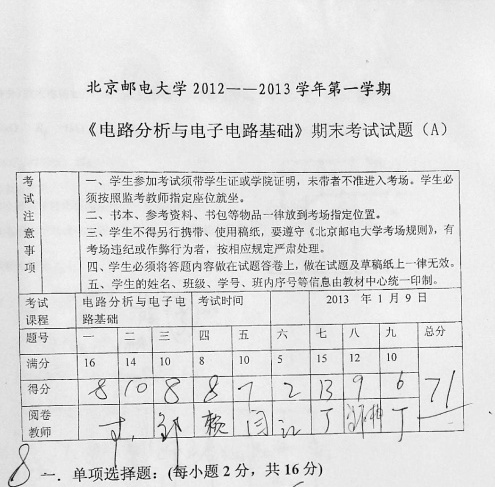 北京邮电大学 2012——2013 学年第一学期
《电路分析与电子电路基础》期末考试试题（A）
考试注意事项
一、学生参加考试须带学生证或学院证明，未带者不准进入考场。学生必
须按照监考教师指定座位就坐。
二、书本、参考资料、书包等物品一律放到考场指定位置。
三、学生不得另行携带、使用稿纸，要遵守《北京邮电大学考场规则》，有
考场违纪或作弊行为者，按相应规定严肃处理。
四、学生必须将答题内容做在试题答卷上，做在试题及草稿纸上一律无效。
五、学生的姓名、班级、学号、班内序号等信息由教材中心统一印制。
考试 电路分析与电子电 考试时间 2013 年 1 月 9 日
课程 路基础
题号 一 二 三 四 五 六 七 八 九 总分
满分 16 14 10 8 10 5 15 12 10
得分 8 10 8 8 7 2 13 9 6 71
阅卷 邹 赖 闫 江 丁 丁
教师
8 一．单项选择题：(每小题 2 分，共 16 分)